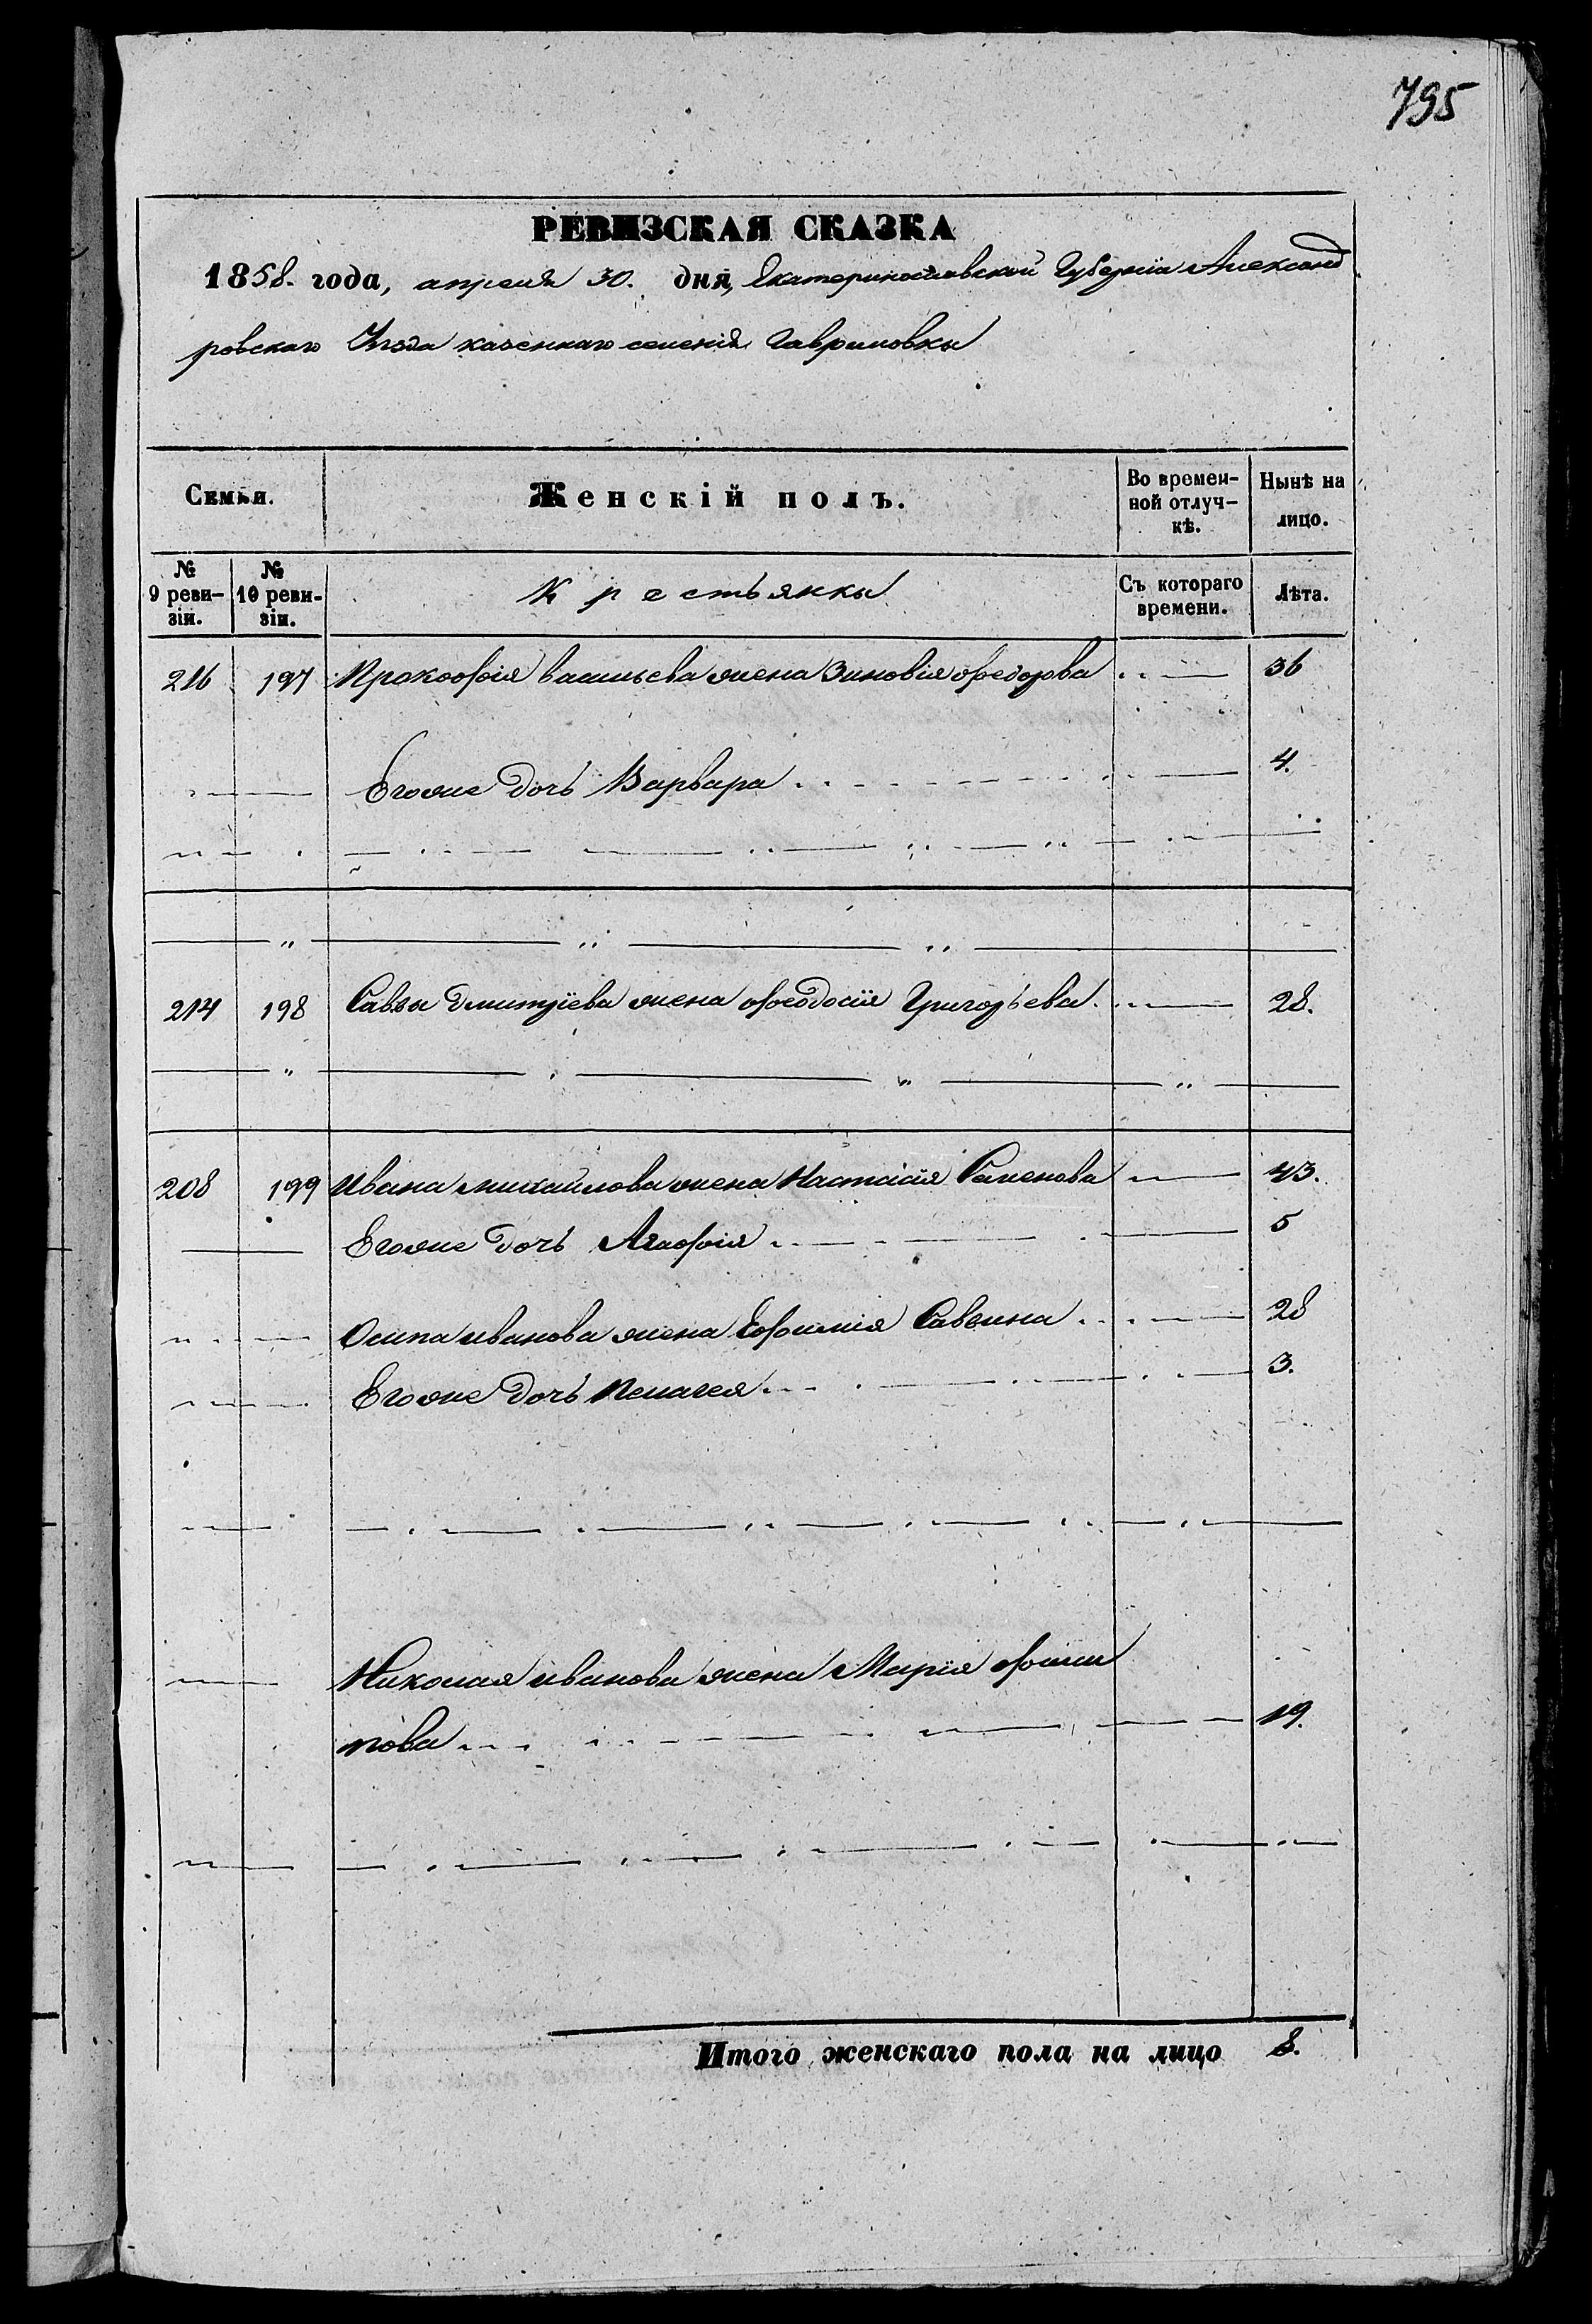 795
РЕВИЗСКАЯ СКАЗКА
1858. года, апреля 30. дня, Екатеринославской Губернїи Александ
ровскаго Уезда казеннаго селенія Гавриловки
Семьи.
Женскій полъ.
Во времен-
ной отлуч-
кѣ.
Нынѣ на
лицо.
№
9 реви-
зіи.
№
10 реви-
зіи.
Крестьянки
Съ котораго
времени.
Лѣта.
216 197 Прокофія васильева жена Зиновія федорова 36
Егоже дочь Варвара 4.
214 198 Савы Дмитрїева жена феодосїя Григорьева 28.
208 199 Ивана михайлова жена Настасїя Семенова 43.
Егоже дочь Агафія 5
Осипа иванова жена Ефимія Савеина 28
Егоже дочь Пелагея 3.
Николая иванова жена Марїя фили
пова 19.
Итого женскаго пола на лицо 8.